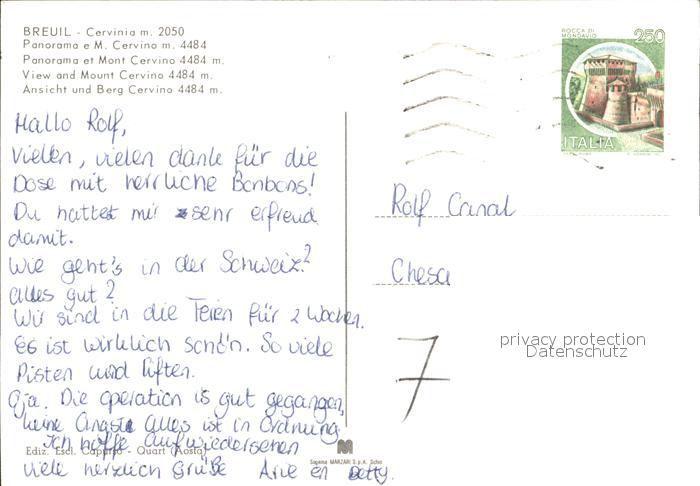 BREUIL - Cervinia m. 2050
Panorama e M. Cervino m. 4484
Panorama et Mont Cervino 4484 m.
View and Mount Cervino 4484 m.
Ansicht und Berg Cervino 4484 m.
ROCCA DI
MONDAVIO
250
ITALIA
Hallo Rolf,
Viellen, vielen danke für die
Dose mit herrliche Bonbons!
Du hattet mir sehr erfreud
damit.
Wie geht's in der Schweiz?
Alles gut?
Wir sind in die Ferien für 2 Wochen.
Es ist wirklich schön. So viele
Pisten und liften.
Oja. Die operation is gut gegangen,
keine Angst alles ist in Ordnung
Ich hoffe auf wiedersehen
viele herzlich Grüße Arie en Betty.
Rolf Canal
Chesa
7
privacy protection
Datenschutz
Ediz. Escl. Caputo - Quart (Aosta)
Sagoma MARZARI S.p.A. Schio